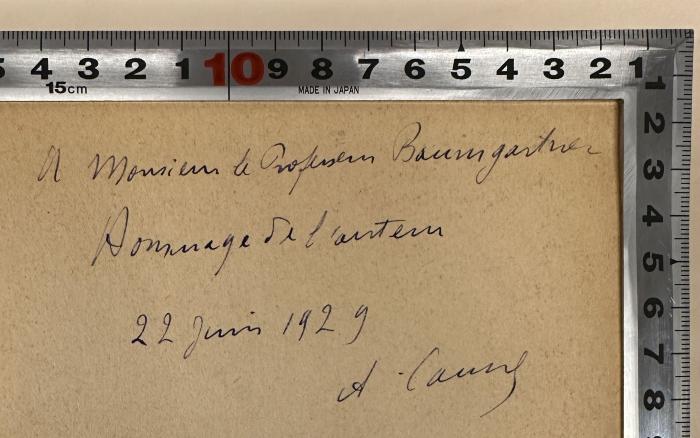 5 4 3 2 1 10 9 8 7 6 5 4 3 2 1
15cm MADE IN JAPAN
1
2
3
4
5
6
7
8
A Monsieur le Professeur Baumgartner
Hommage de l'auteur
22 Juin 1929
A.